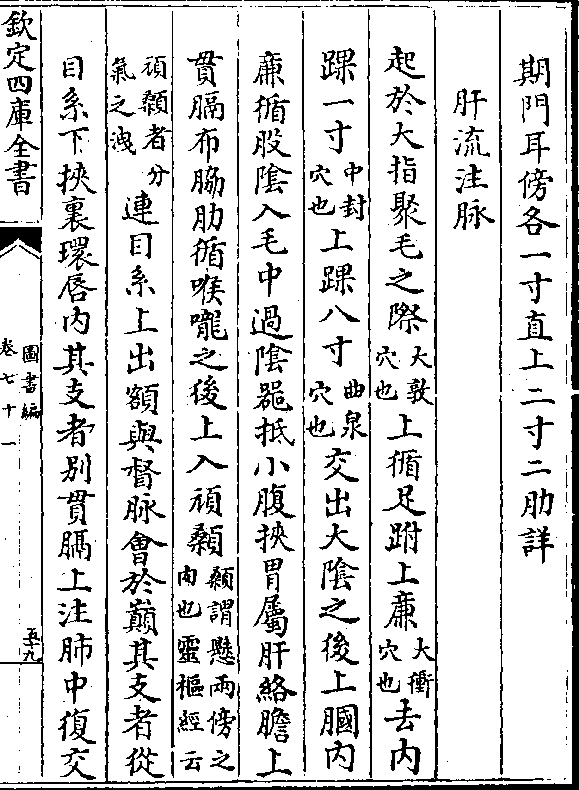 期門耳傍各一寸直上二寸二肋詳
肝流注脉
起於大指聚毛之際大敦穴也上循足跗上亷大衝穴也去内
踝一寸中封穴也上踝八寸曲泉穴也交出大陰之後上膕内
亷循股陰入毛中過陰器抵小腹挾胃屬肝絡膽上
貫膈布脇肋循喉嚨之後上入頏顙顙謂懸兩傍之内也靈樞經云
頏顙者分氣之洩連目系上出額與督脉會於巔其支者從
目系下挾裏環唇内其支者别貫膈上注肺中復交
欽定四庫全書
圖書編
卷七十一
五十九